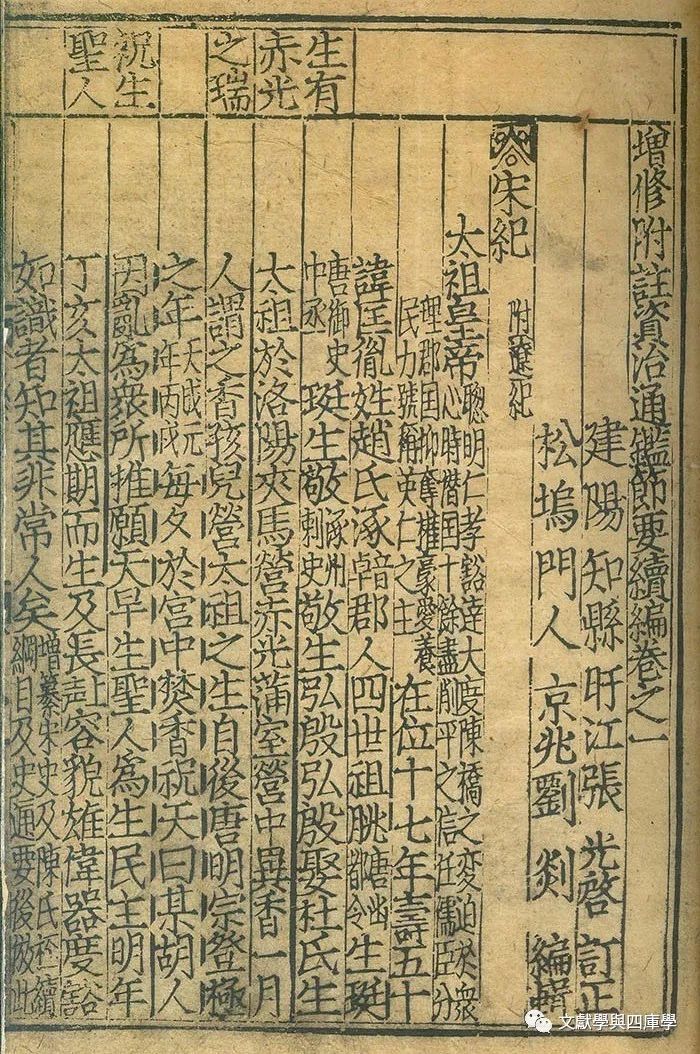 增修附註資治通鑑節要續編卷之一
建陽知縣盱江張光啓訂正
松塢門人京兆劉剡編輯
宋紀 附遼紀
太祖皇帝 聰明仁孝豁達大度陳橋之変迫於衆
心時僭囯十餘盡削平之信任儒臣分
理郡囯抑奪權豪愛養
民力號稱英仁之主
在位十七年壽五十
諱匡胤姓趙氏涿音卓郡人四世祖朓唐幽都令生珽
唐御史中丞珽生敬涿州刺史敬生弘殷弘殷娶杜氏生
生有
赤光
之瑞
太祖於洛陽夾馬營赤光蒲室營中異香一月
人謂之香孩兒營太祖之生自後唐明宗登極
之年天成元年丙戌每夕於宮中焚香祝天曰某胡人
祝生
聖人
因亂爲衆所推願天早生聖人爲生民主明年
丁亥太祖應期而生及長上声容貌雄偉器度豁
如識者知其非常人矣 增纂宋史及陳氏桱續
綱目及史通要後倣此
文獻學與四庫學